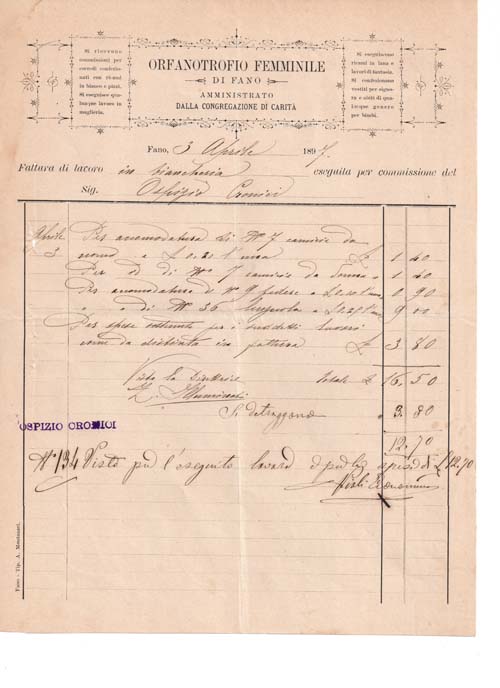 Si ricevono
commissioni per
corredi confezio-
nati con ricami
in bianco e pizzi.
Si eseguisce qua-
lunque lavoro in
maglieria.
ORFANOTROFIO FEMMINILE
DI FANO
AMMINISTRATO
DALLA CONGREGAZIONE DI CARITÀ
Si eseguiscono
ricami in lana e
lavori di fantasia.
Si confezionano
vestiti per signo-
ra e abiti di qua-
lunque genere
per bimbi.
Fano, 3 Aprile 1897.
Fattura di lavoro in biancheria eseguita per commissione del
Sig. Ospizio Cronici
Aprile
3
Per accomodatura di N° 7 camicie da
uomo a £ 0.20 l'una £ 1 40
Per id di N° 7 camicie da donna " 1 40
Per accomodatura di N° 9 federe a £ 0.10 l'una 0 90
" " di N° 36 lenzuola a £ 0.25 l'uno 9 00
Per spese sostenute per i suddetti lavori
come da distinta in fattura £ 3 80
Visto la Direttrice Totale £ 16.50
Z. Illuminati
Si detraggono " 3. 80
OSPIZIO CRONICI
12.70
N° 134 Visto pel l'eseguito lavoro £ 12.70
Fano - Tip. A. Montanari.